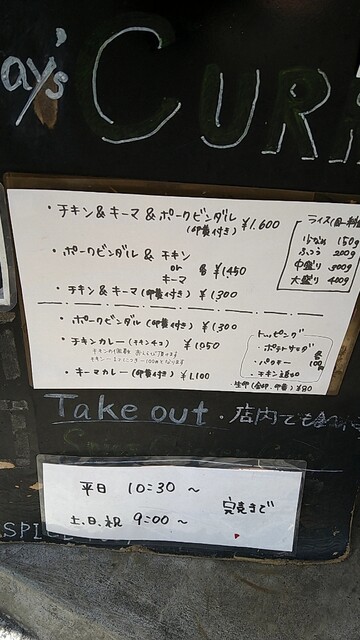 ay's CURR
・チキン&キーマ&ポークビンダル
(卵黄付き) ¥1.600
・ポークビンダル & チキン
or
キーマ
各¥1450
・チキン&キーマ(卵黄付き) ¥1300
・ポークビンダル(卵黄付き) ¥1300
・チキンカレー(チキン4コ) ¥1050
・キーマカレー(卵黄付き) ¥1.100
ライス(同一料金
少なめ 150g
ふつう 200g
中盛り 300g
大盛り 400g
トッピング
・ポテトサラダ
・パクチー
・チキン追加
各100円
・生卵(全卵、卵黄) ¥80
Take out・店内でも
平日 10:30 ~
土、日、祝 9:00 ~
完売まで
SPIC